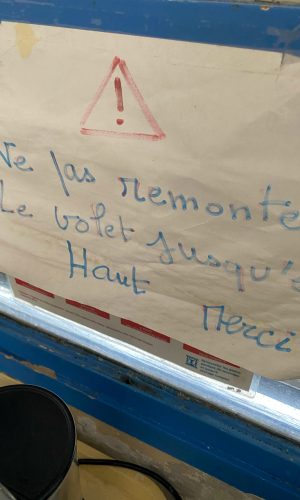 !
Ne pas remonte
Le volet jusqu'a
Haut
Merci